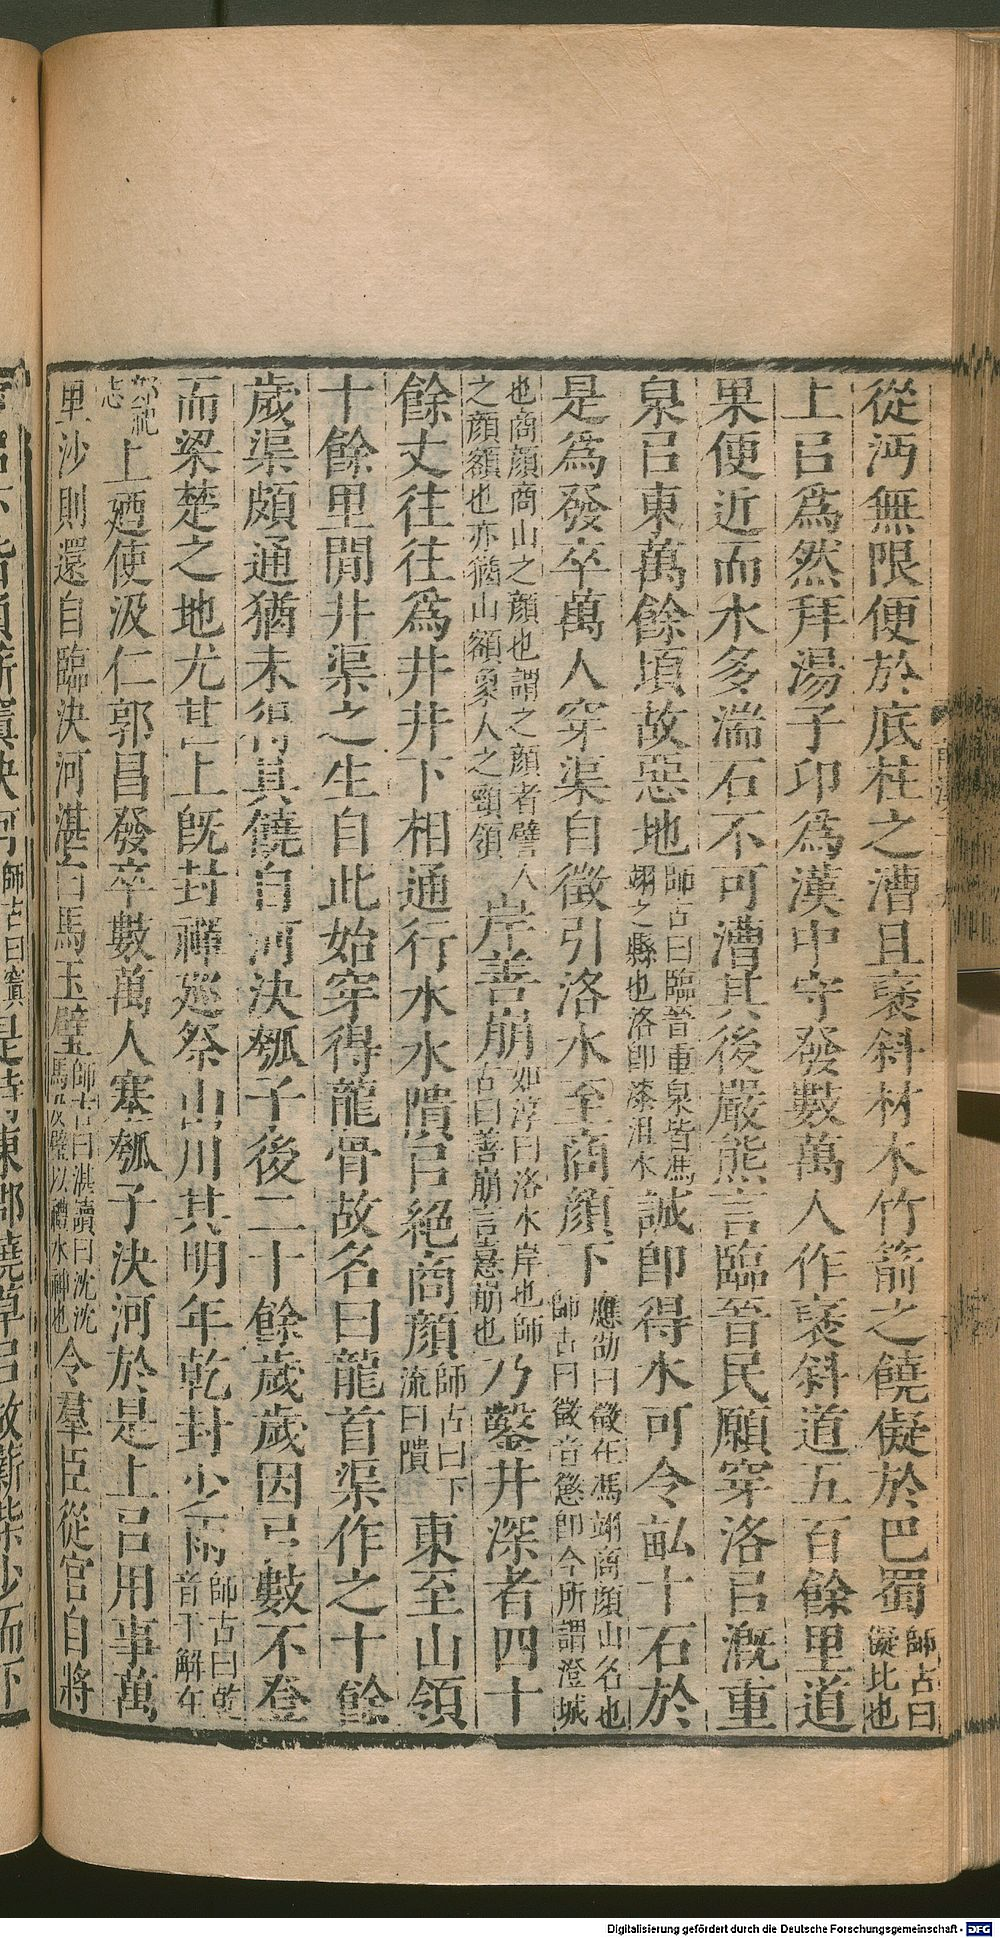 從沔無限便於底柱之漕且襃斜材木竹箭之饒儗於巴蜀師古曰儗比也
上㠯爲然拜湯子卬爲漢中守發數萬人作襃斜道五百餘里道
果便近而水多湍石不可漕其後嚴熊言臨晉民願穿洛㠯漑重
泉㠯東萬餘頃故惡地師古曰臨晉重泉皆馮翊之縣也洛卽漆沮水誠卽得水可令畝十石於
是爲發卒萬人穿渠自徵引洛水至商顏下應劭曰徵在馮翊商顏山名也師古曰徵音懲卽今所謂澄城
也商顏商山之顏也謂之顏者譬人之顏額也亦猶山額象人之頸領岸善崩如淳曰洛水岸也師古曰善崩言憙崩也乃鑿井深者四十
餘丈往往爲井井下相通行水水隤㠯絕商顏師古曰下流曰隤東至山領
十餘里閒井渠之生自此始穿得龍骨故名曰龍首渠作之十餘
歲渠頗通猶未得其饒自河決瓠子後二十餘歲歲因㠯數不登
而梁楚之地尤甚上旣封禪巡祭山川其明年乾封少雨師古曰乾音干解在
郊祀志上廼使汲仁郭昌發卒數萬人塞瓠子決河於是上㠯用事萬
里沙則還自臨決河湛白馬玉璧師古曰湛讀曰沈沈馬及璧以禮水神也令羣臣從官自將
Digitalisierung gefördert durch die Deutsche Forschungsgemeinschaft - DFG